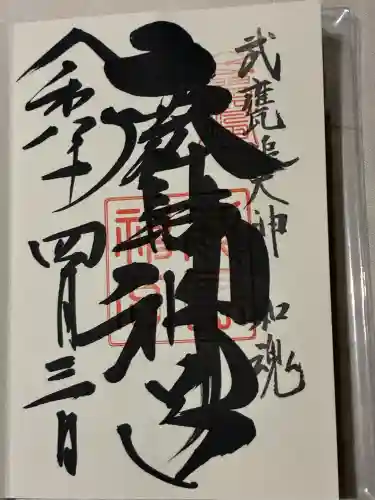 武甕追大神 和魂
鹿島神宮
令和八年
四月三日